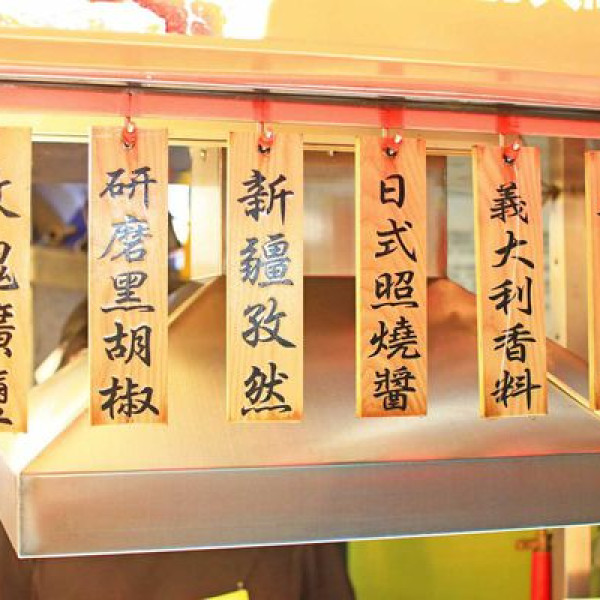 研磨黑胡椒
新疆孜然
日式照燒醬
義大利香料